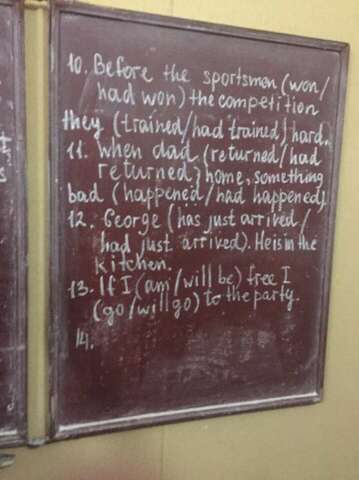 10. Before the sportsmen (won/
had won) the competition
they (trained/had trained) hard.
11. When dad (returned/had
returned) home, something
bad (happened/had happened)
12. George (has just arrived/
had just arrived). He is in the
kitchen.
13. If I (am/will be) free I
(go/will go) to the party.
14.